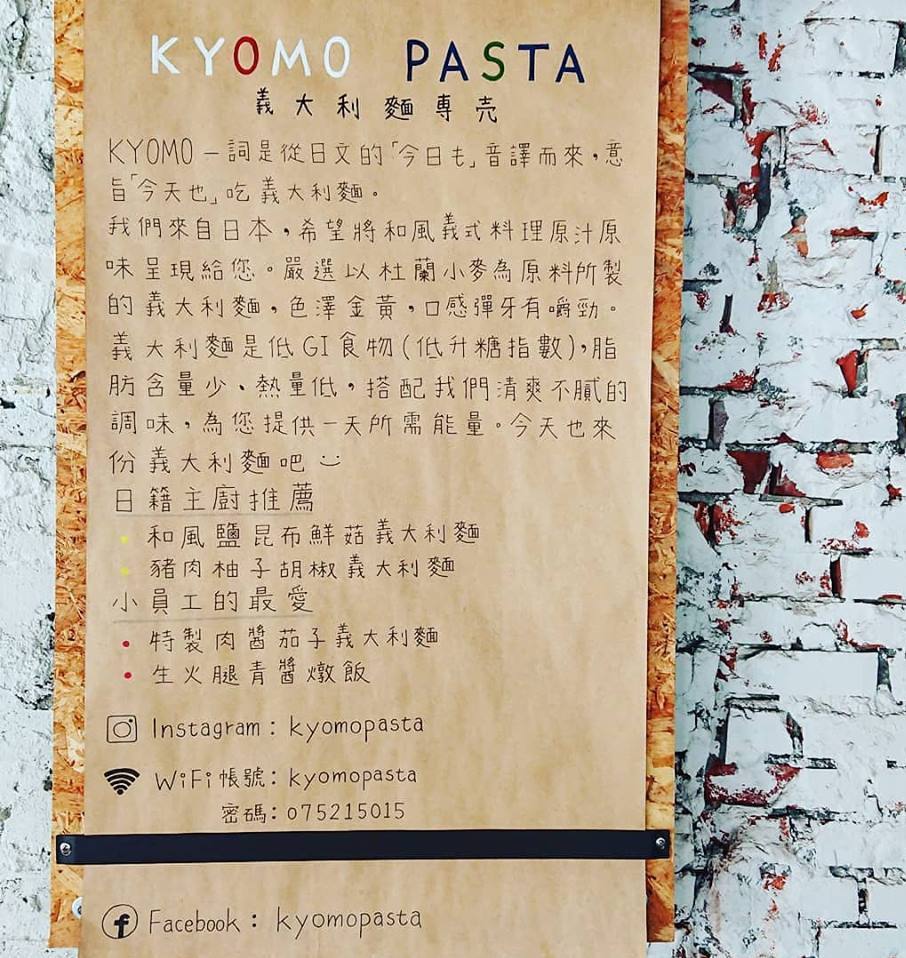 KYOMO PASTA
義大利麵專売
KYOMO一詞是從日文的「今日も」音譯而來，意
旨「今天也」吃義大利麵。
我們來自日本，希望將和風義式料理原汁原
味呈現給您。嚴選以杜蘭小麥為原料所製
的義大利麵，色澤金黃，口感彈牙有嚼勁。
義大利麵是低GI食物(低升糖指數)，脂
肪含量少、熱量低，搭配我們清爽不膩的
調味，為您提供一天所需能量。今天也來
份義大利麵吧 :)
日籍主廚推薦
• 和風鹽昆布鮮菇義大利麵
• 豬肉柚子胡椒義大利麵
小員工的最愛
• 特製肉醬茄子義大利麵
• 生火腿青醬燉飯
Instagram：kyomopasta
WiFi帳號：kyomopasta
密碼：075215015
Facebook：kyomopasta